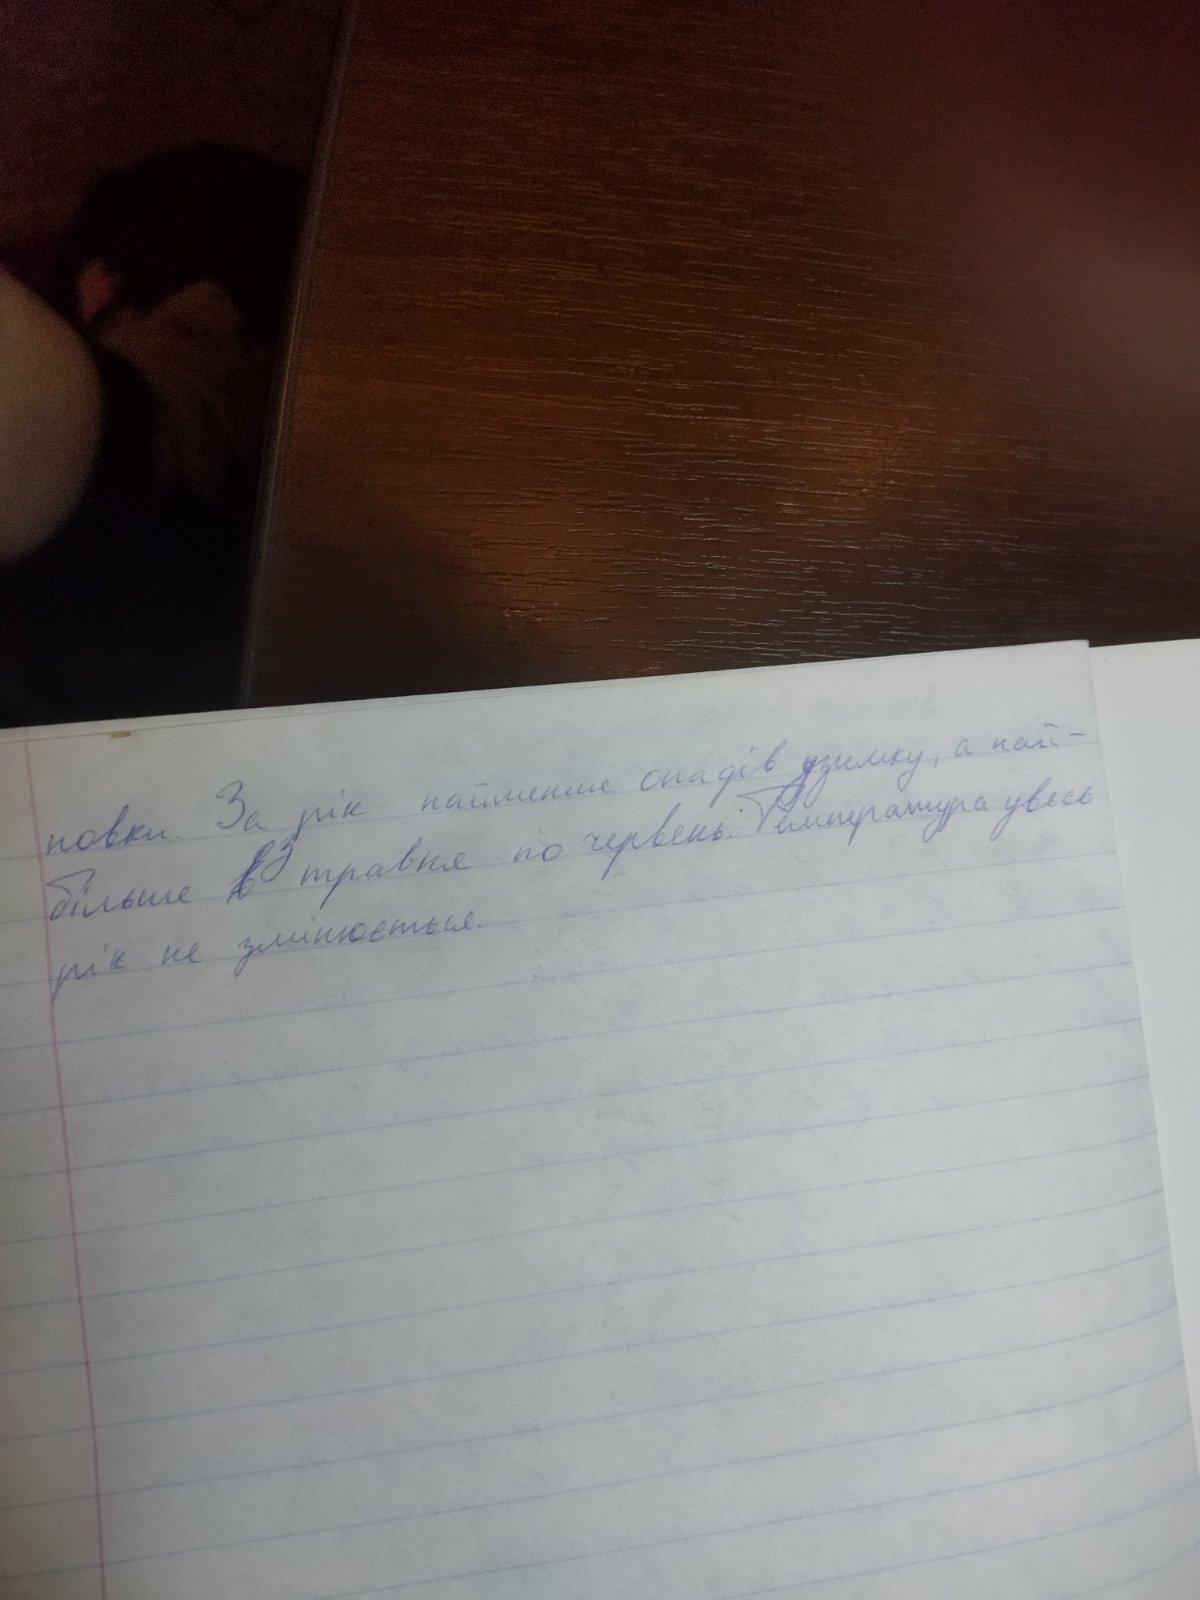 повки. За рік найменше опадів узимку, а най-
більше з травня по червень. Температура увесь
рік не змінюється.